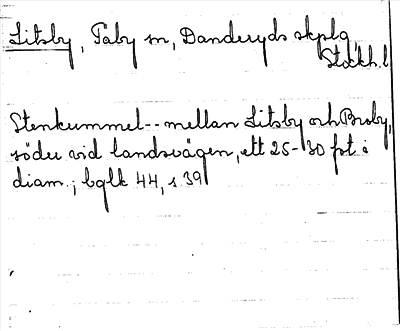 Litsby, Täby sn, Danderyds skplg
Stockh. l
Stenkummel -- mellan Litsby och Broby,
söder vid landsvägen, ett 25-30 fot i
diam.; bglk 44, s 39